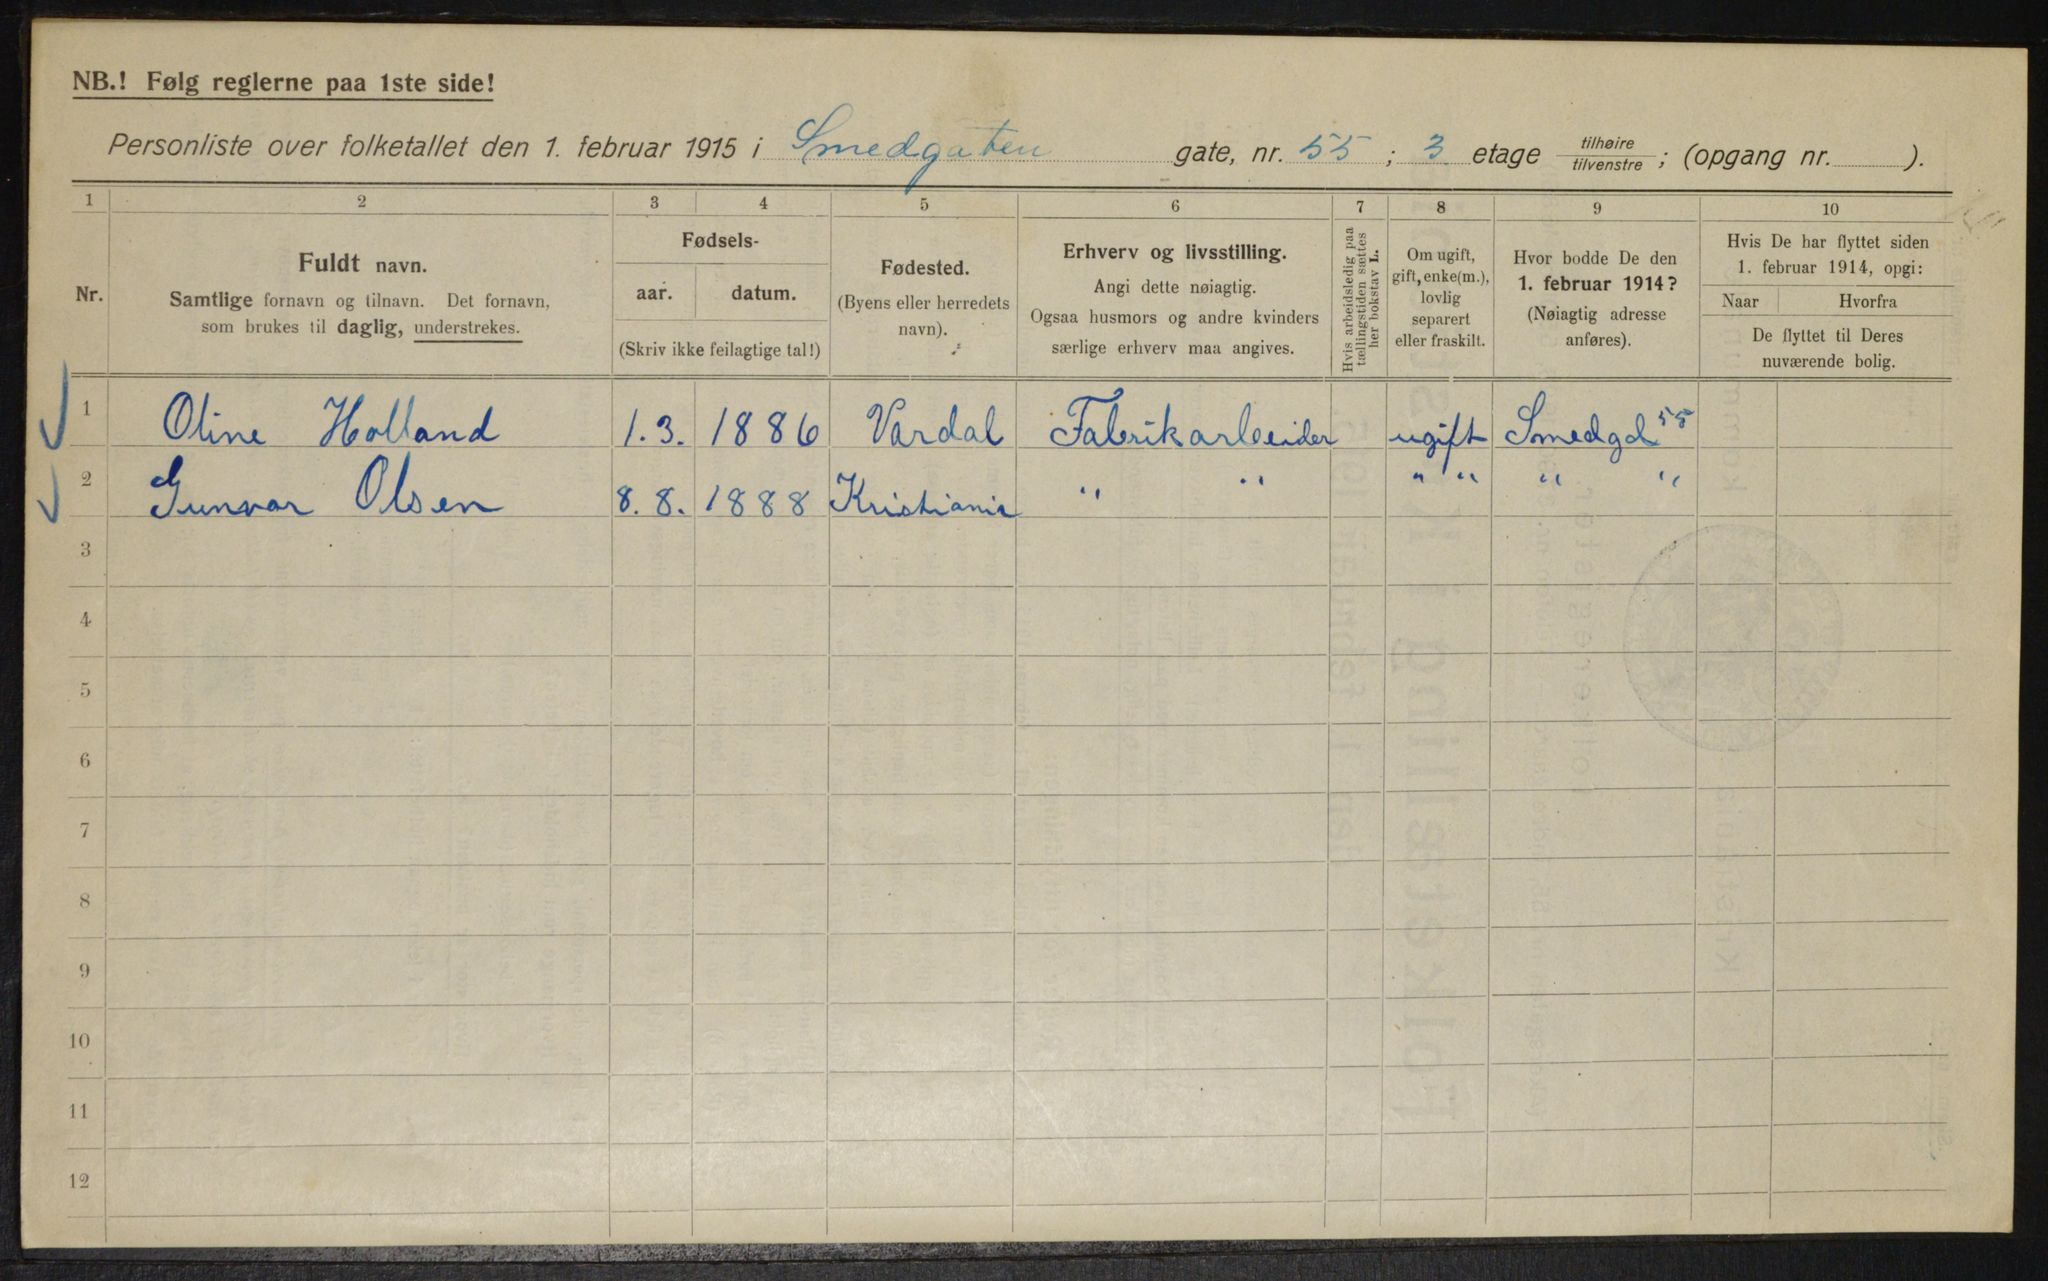 NB.! Følg reglerne paa 1ste side!
Personliste over folketallet den 1. februar 1915 i Smedgaten gate, nr. 55 ; 3 etage tilhøire/tilvenstre ; (opgang nr. ).
1 2 3 4 5 6 7 8 9 10
Nr.
Fuldt navn.
Samtlige fornavn og tilnavn. Det fornavn,
som brukes til daglig, understrekes.
Fødsels-
aar. datum.
(Skriv ikke feilagtige tal!)
Fødested.
(Byens eller herredets
navn).
Erhverv og livsstilling.
Angi dette nøiagtig.
Ogsaa husmors og andre kvinders
særlige erhverv maa angives.
Hvis arbeidsledig paa
tællingstiden sættes
her bokstav L.
Om ugift,
gift, enke(m.),
lovlig
separert
eller fraskilt.
Hvor bodde De den
1. februar 1914?
(Nøiagtig adresse
anføres).
Hvis De har flyttet siden
1. februar 1914, opgi:
Naar Hvorfra
De flyttet til Deres
nuværende bolig.
1 Oline Holland 1.3. 1886 Vardal Fabrikarbeider ugift Smedgd 55
2 Gunvor Olsen 8.8. 1888 Kristiania " " " " " "
3
4
5
6
7
8
9
10
11
12